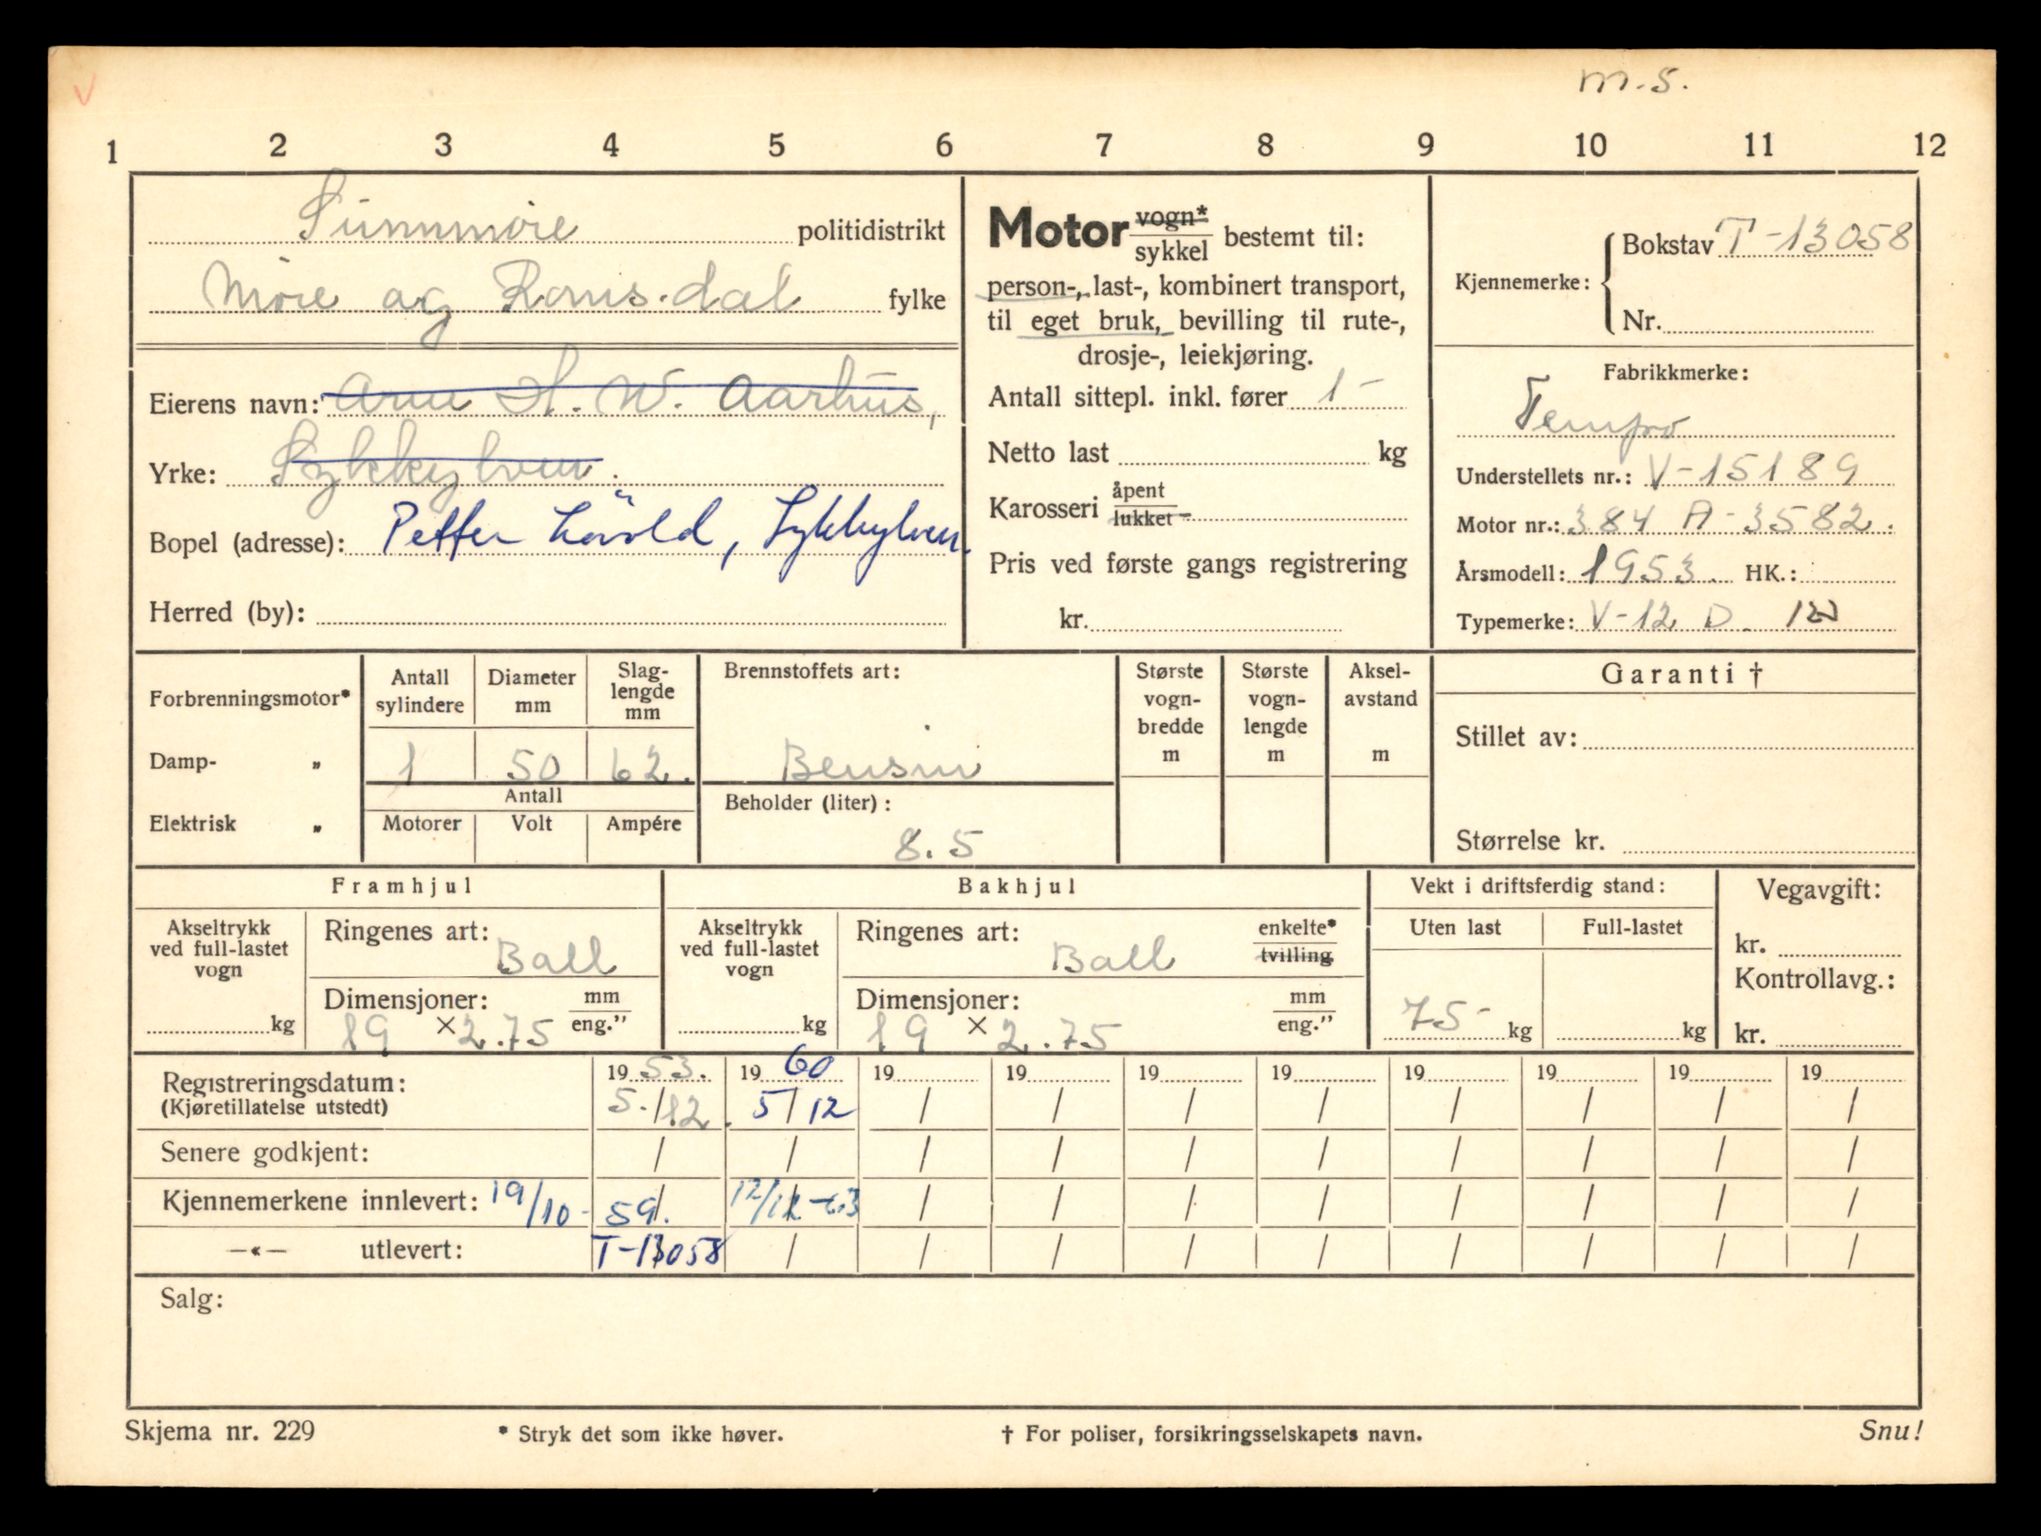 m.s.
1 2 3 4 5 6 7 8 9 10 11 12
Sunnmøre politidistrikt
Møre og Romsdal fylke
Eierens navn: Arne H. W. Aarhus,
Yrke: Sykkylven.
Bopel (adresse): Petter Lövold, Sykkylven.
Herred (by):
Motor vogn* / sykkel bestemt til:
person-, last-, kombinert transport,
til eget bruk, bevilling til rute-,
drosje-, leiekjøring.
Antall sittepl. inkl. fører 1 -
Netto last kg
Karosseri åpent / lukket -
Pris ved første gangs registrering
kr.
Kjennemerke: Bokstav T-13058
Nr.
Fabrikkmerke:
Tempo
Understellets nr.: V-15189
Motor nr.: 384 A-3582.
Årsmodell: 1953. HK.:
Typemerke: V-12 D.
Forbrenningsmotor*
Damp- „
Elektrisk „
Antall sylindere
Diameter mm
Slag- lengde mm
1 50 62.
Antall
Motorer Volt Ampére
Brennstoffets art:
Bensin
Beholder (liter):
8.5
Største vogn- bredde m
Største vogn- lengde m
Aksel- avstand m
Garanti †
Stillet av:
Størrelse kr.
Framhjul
Akseltrykk ved full-lastet vogn
kg
Ringenes art: Ball
Dimensjoner: mm / eng."
19 × 2.75
Bakhjul
Akseltrykk ved full-lastet vogn
kg
Ringenes art: Ball enkelte* / tvilling
Dimensjoner: mm / eng."
19 × 2.75
Vekt i driftsferdig stand:
Uten last Full-lastet
75- kg kg
Vegavgift:
kr.
Kontrollavg.:
kr.
Registreringsdatum: 1953. 1960 19 19 19 19 19 19 19 19
(Kjøretillatelse utstedt) 5./12. 5/12 / / / / / / / /
Senere godkjent: / / / / / / / / / /
Kjennemerkene innlevert: 19/10- 59. 12/12-63 / / / / / / / /
—«— utlevert: T-13058 / / / / / / / / /
Salg:
Skjema nr. 229 * Stryk det som ikke høver. † For poliser, forsikringsselskapets navn. Snu!